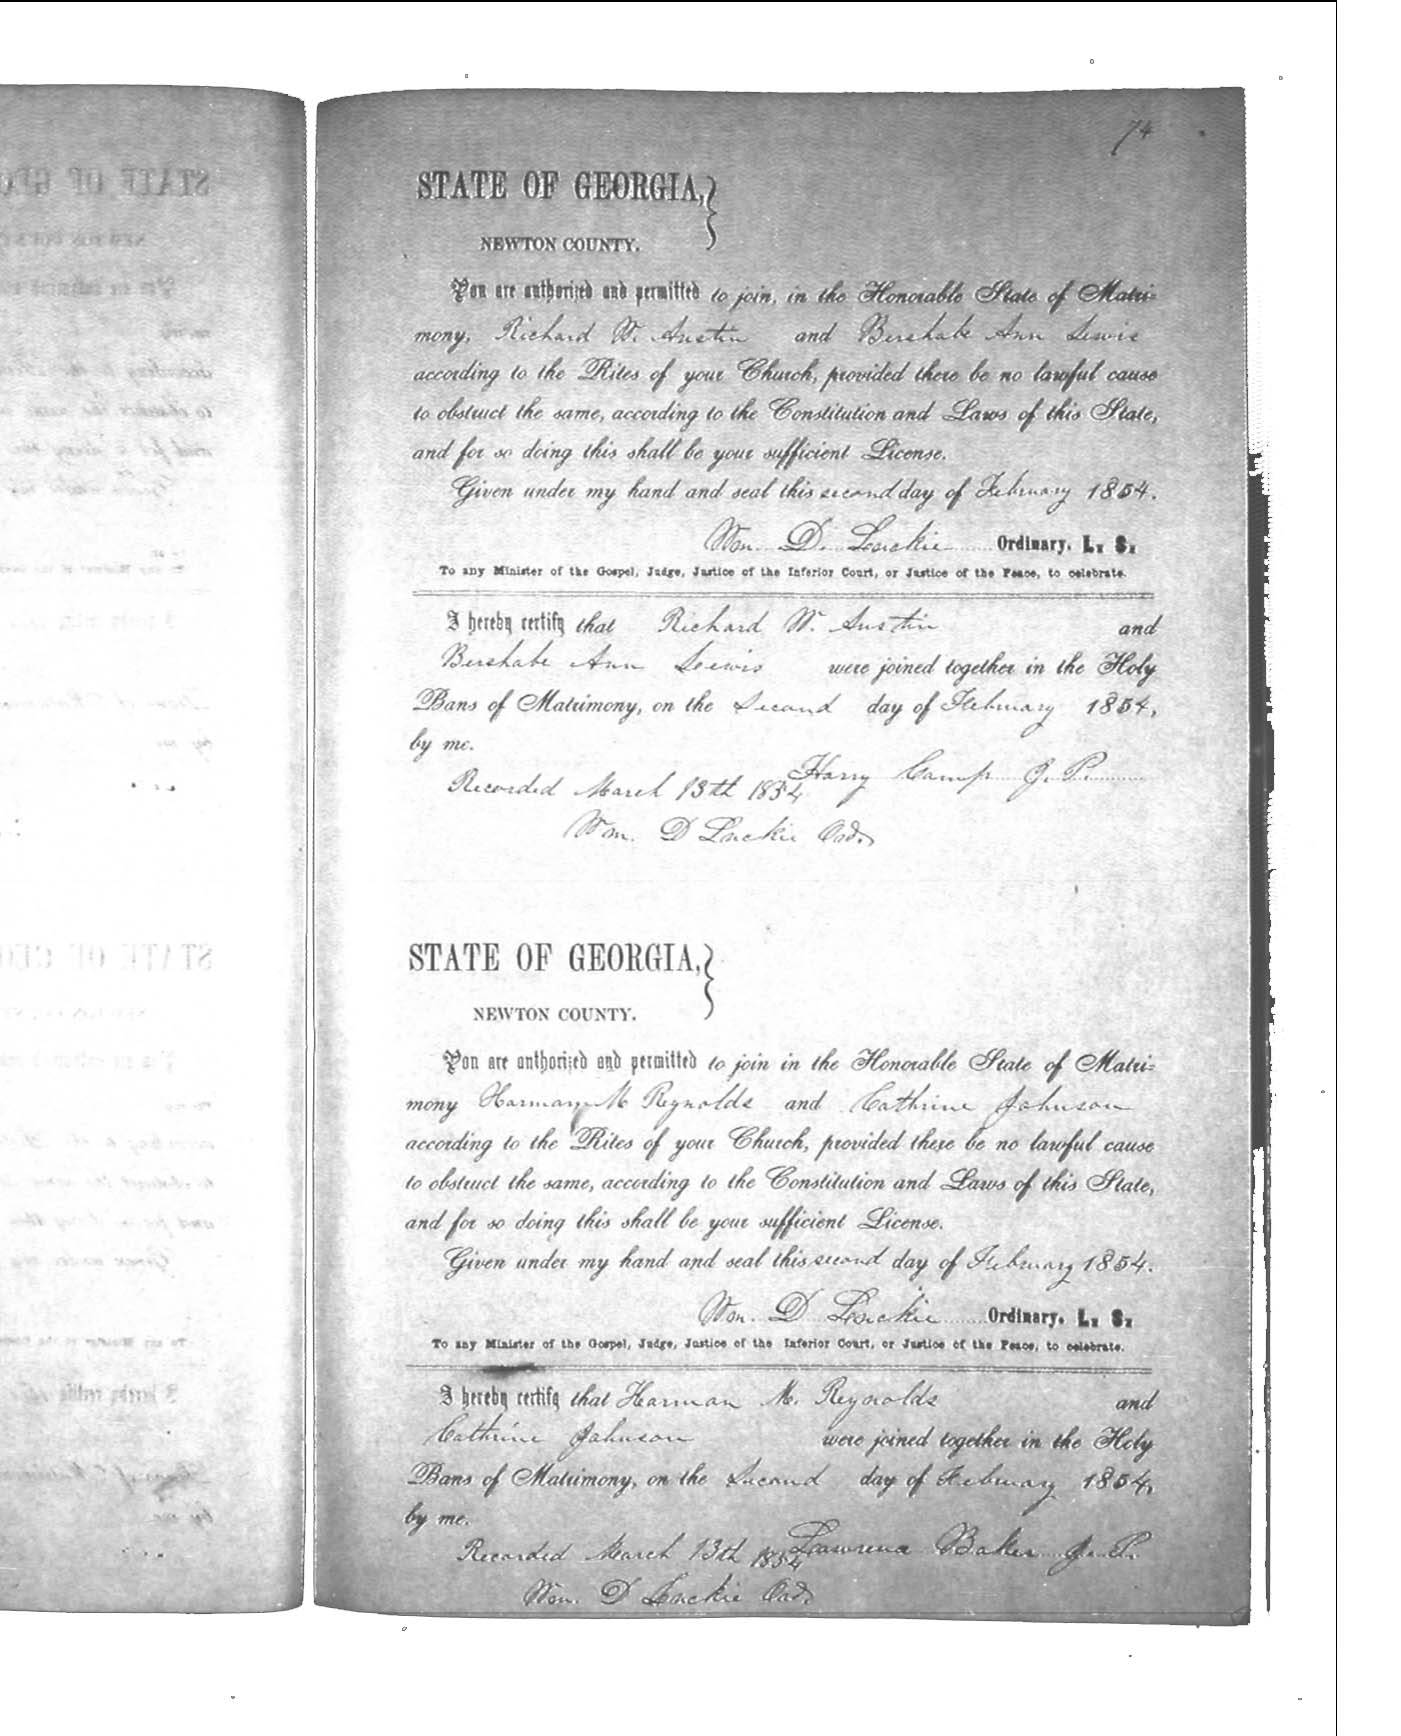 74
STATE OF GEORGIA,
NEWTON COUNTY.
You are authorized and permitted to join, in the Honorable State of Matri-
mony, Richard W. Austin and Bershabe Ann Lewis
according to the Rites of your Church, provided there be no lawful cause
to obstruct the same, according to the Constitution and Laws of this State,
and for so doing this shall be your sufficient License.
Given under my hand and seal this second day of February 1854.
Wm. D. Luckie Ordinary, L. S.
To any Minister of the Gospel, Judge, Justice of the Inferior Court, or Justice of the Peace, to celebrate.
I hereby certify that Richard W. Austin and
Bershabe Ann Lewis were joined together in the Holy
Bans of Matrimony, on the Second day of February 1854,
by me.
Harry Camp J. P.
Recorded March 13th 1854
Wm. D Luckie Ord.
STATE OF GEORGIA,
NEWTON COUNTY.
You are authorized and permitted to join in the Honorable State of Matri-
mony Harman M Reynolds and Cathrine Johnson
according to the Rites of your Church, provided there be no lawful cause
to obstruct the same, according to the Constitution and Laws of this State,
and for so doing this shall be your sufficient License.
Given under my hand and seal this second day of February 1854.
Wm. D Luckie Ordinary, L. S.
To any Minister of the Gospel, Judge, Justice of the Inferior Court, or Justice of the Peace, to celebrate.
I hereby certify that Harman M. Reynolds and
Cathrine Johnson were joined together in the Holy
Bans of Matrimony, on the Second day of February 1854,
by me.
Lawrence Baker J. P.
Recorded March 13th 1854
Wm. D Luckie Ord.